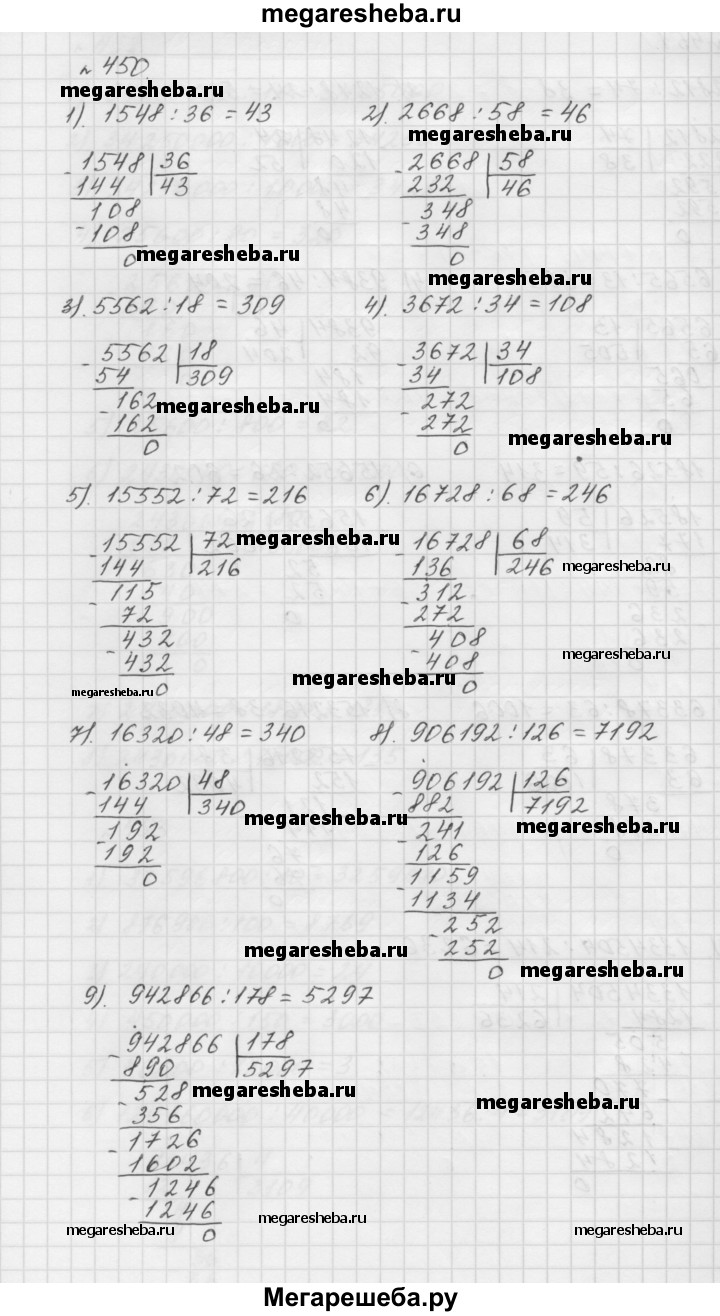 megaresheba.ru
№ 450.
megaresheba.ru
1). 1548 : 36 = 43
2). 2668 : 58 = 46
megaresheba.ru
- 1548 | 36
144 | 43
108
- 108
0
megaresheba.ru
- 2668 | 58
232 | 46
- 348
348
0
megaresheba.ru
3). 5562 : 18 = 309
4). 3672 : 34 = 108
- 5562 | 18
54 | 309
- 162
162
0
megaresheba.ru
- 3672 | 34
34 | 108
- 272
272
0
megaresheba.ru
5). 15552 : 72 = 216
6). 16728 : 68 = 246
- 15552 | 72
144 | 216
- 115
72
- 432
432
0
megaresheba.ru
megaresheba.ru
- 16728 | 68
136 | 246
- 312
272
- 408
408
0
megaresheba.ru
megaresheba.ru
megaresheba.ru
7). 16320 : 48 = 340
8). 906192 : 126 = 7192
- 16320 | 48
144 | 340
- 192
192
0
megaresheba.ru
- 906192 | 126
882 | 7192
- 241
126
- 1159
1134
- 252
252
0
megaresheba.ru
megaresheba.ru
megaresheba.ru
9). 942866 : 178 = 5297
- 942866 | 178
890 | 5297
- 528
356
- 1726
1602
- 1246
1246
0
megaresheba.ru
megaresheba.ru
megaresheba.ru
megaresheba.ru
megaresheba.ru
Мегарешеба.ру